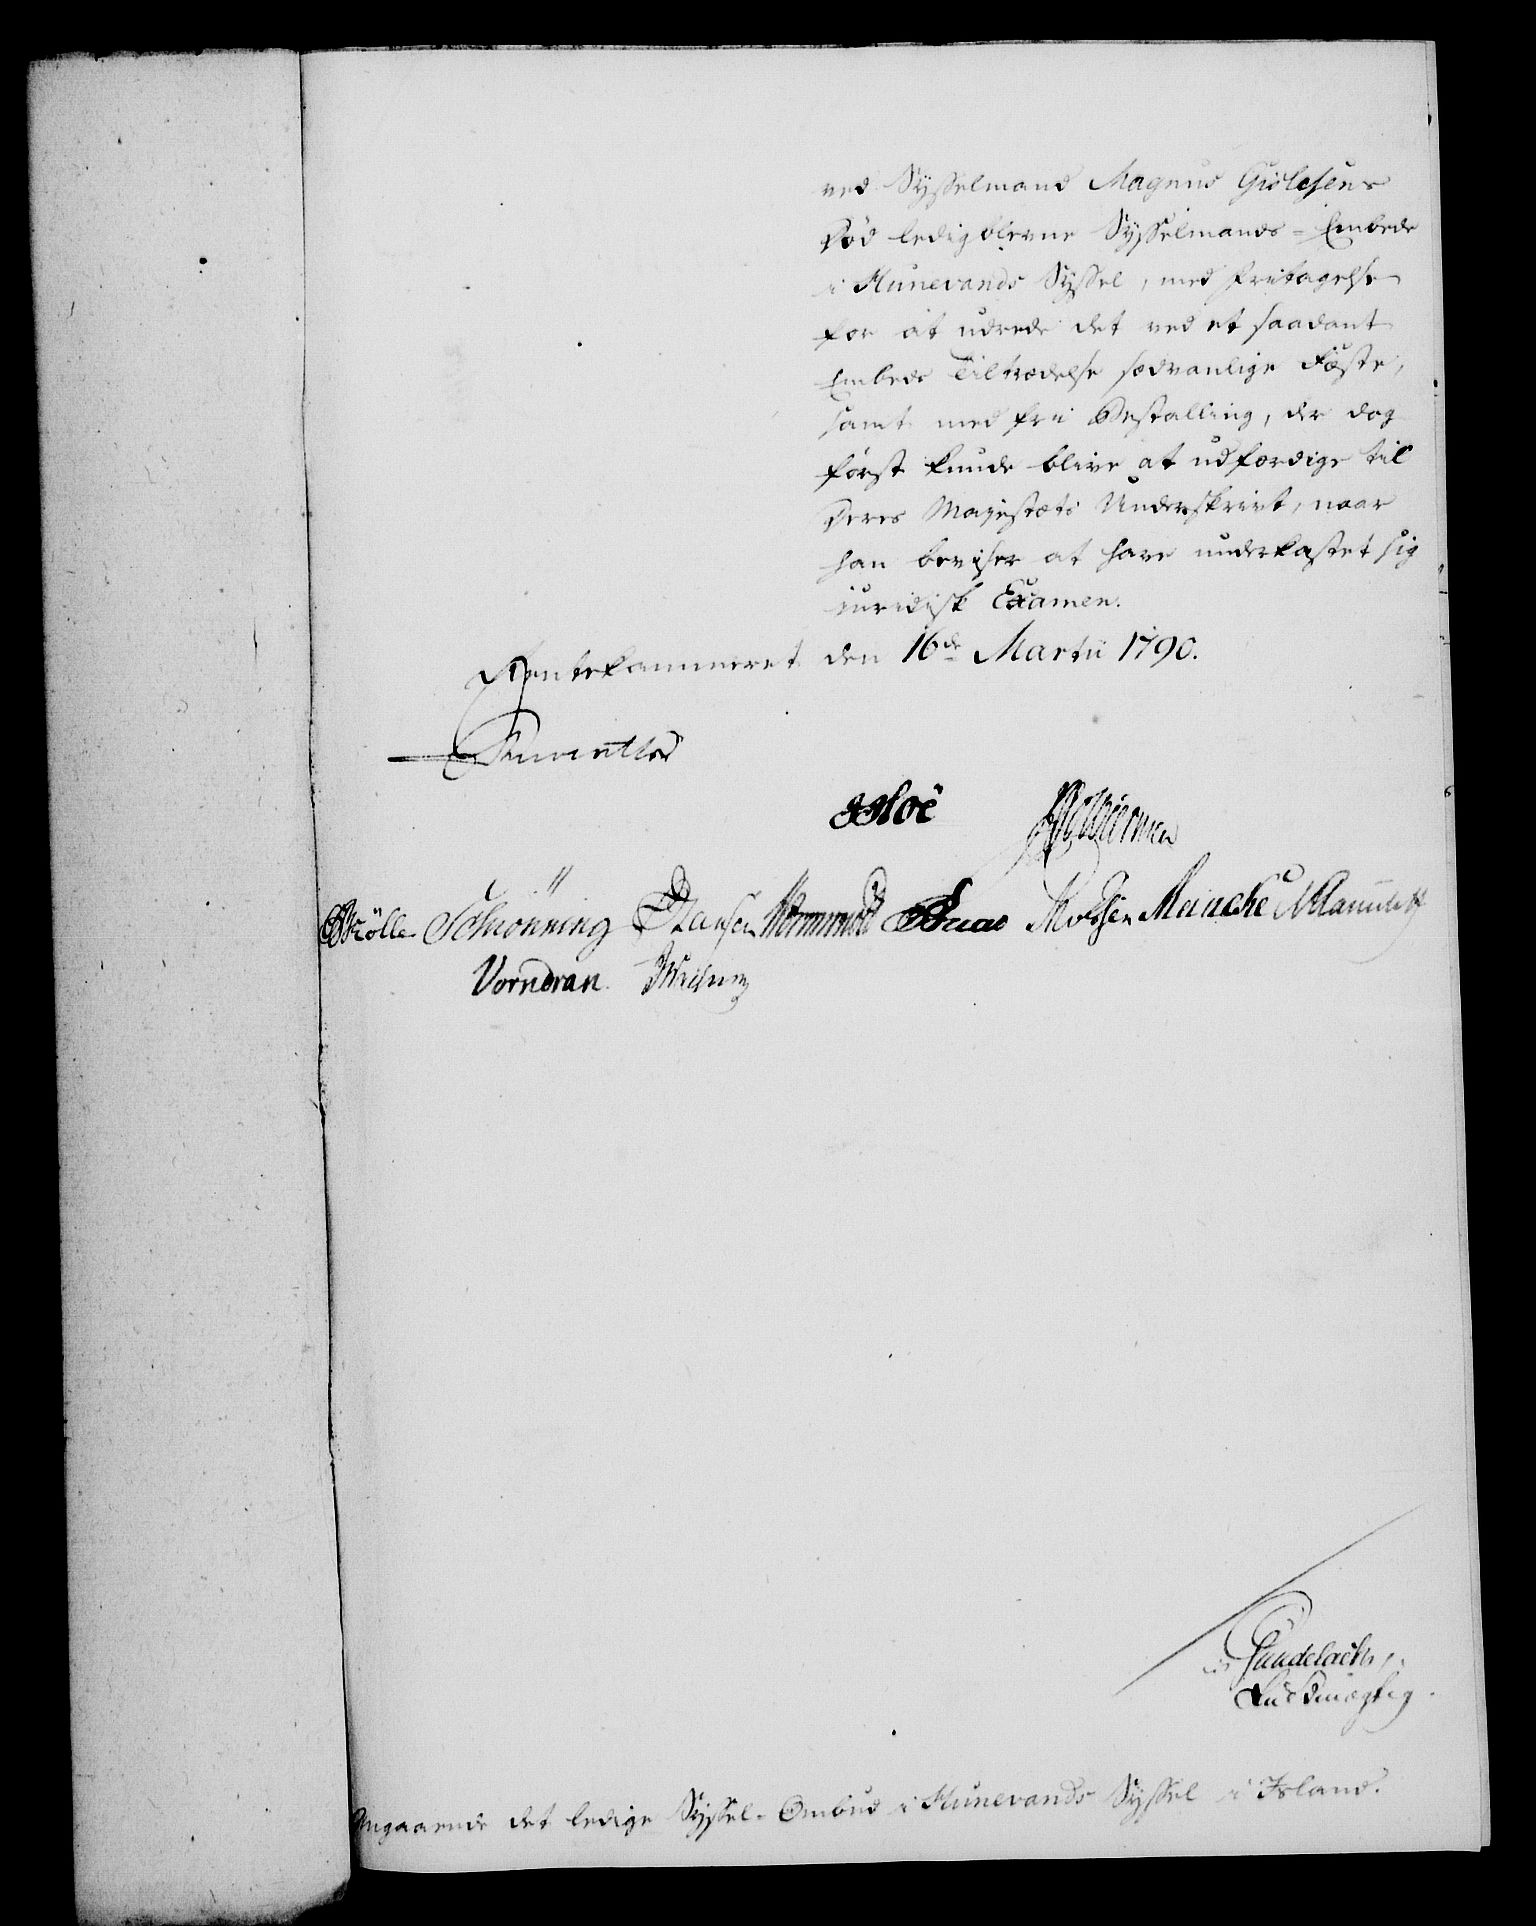 ved Sysselmand Magnus Gislesens
Død ledigblevne Sysselmands-Embede
i Hunevands Syssel, med Fritagelse
for at udrede det ved et saadant
Embeds Tiltrædelse sædvanlige Fæste,
samt med fri Bestalling, der dog
først kunde blive at udfærdige til
Deres Majestæts Underskrivt, naar
han beviser at have underkastet sig
juridisk Examen.
Rentekammeret den 16de Martii 1790.
Reventlow
Hoë
Müller Schiønning Hansen Wormskiold Meinche
Vorndran.
Gundelach,
Fuldmægtig.
Angaaende det ledige Syssel-Ombud i Hunevands Syssel i Island.